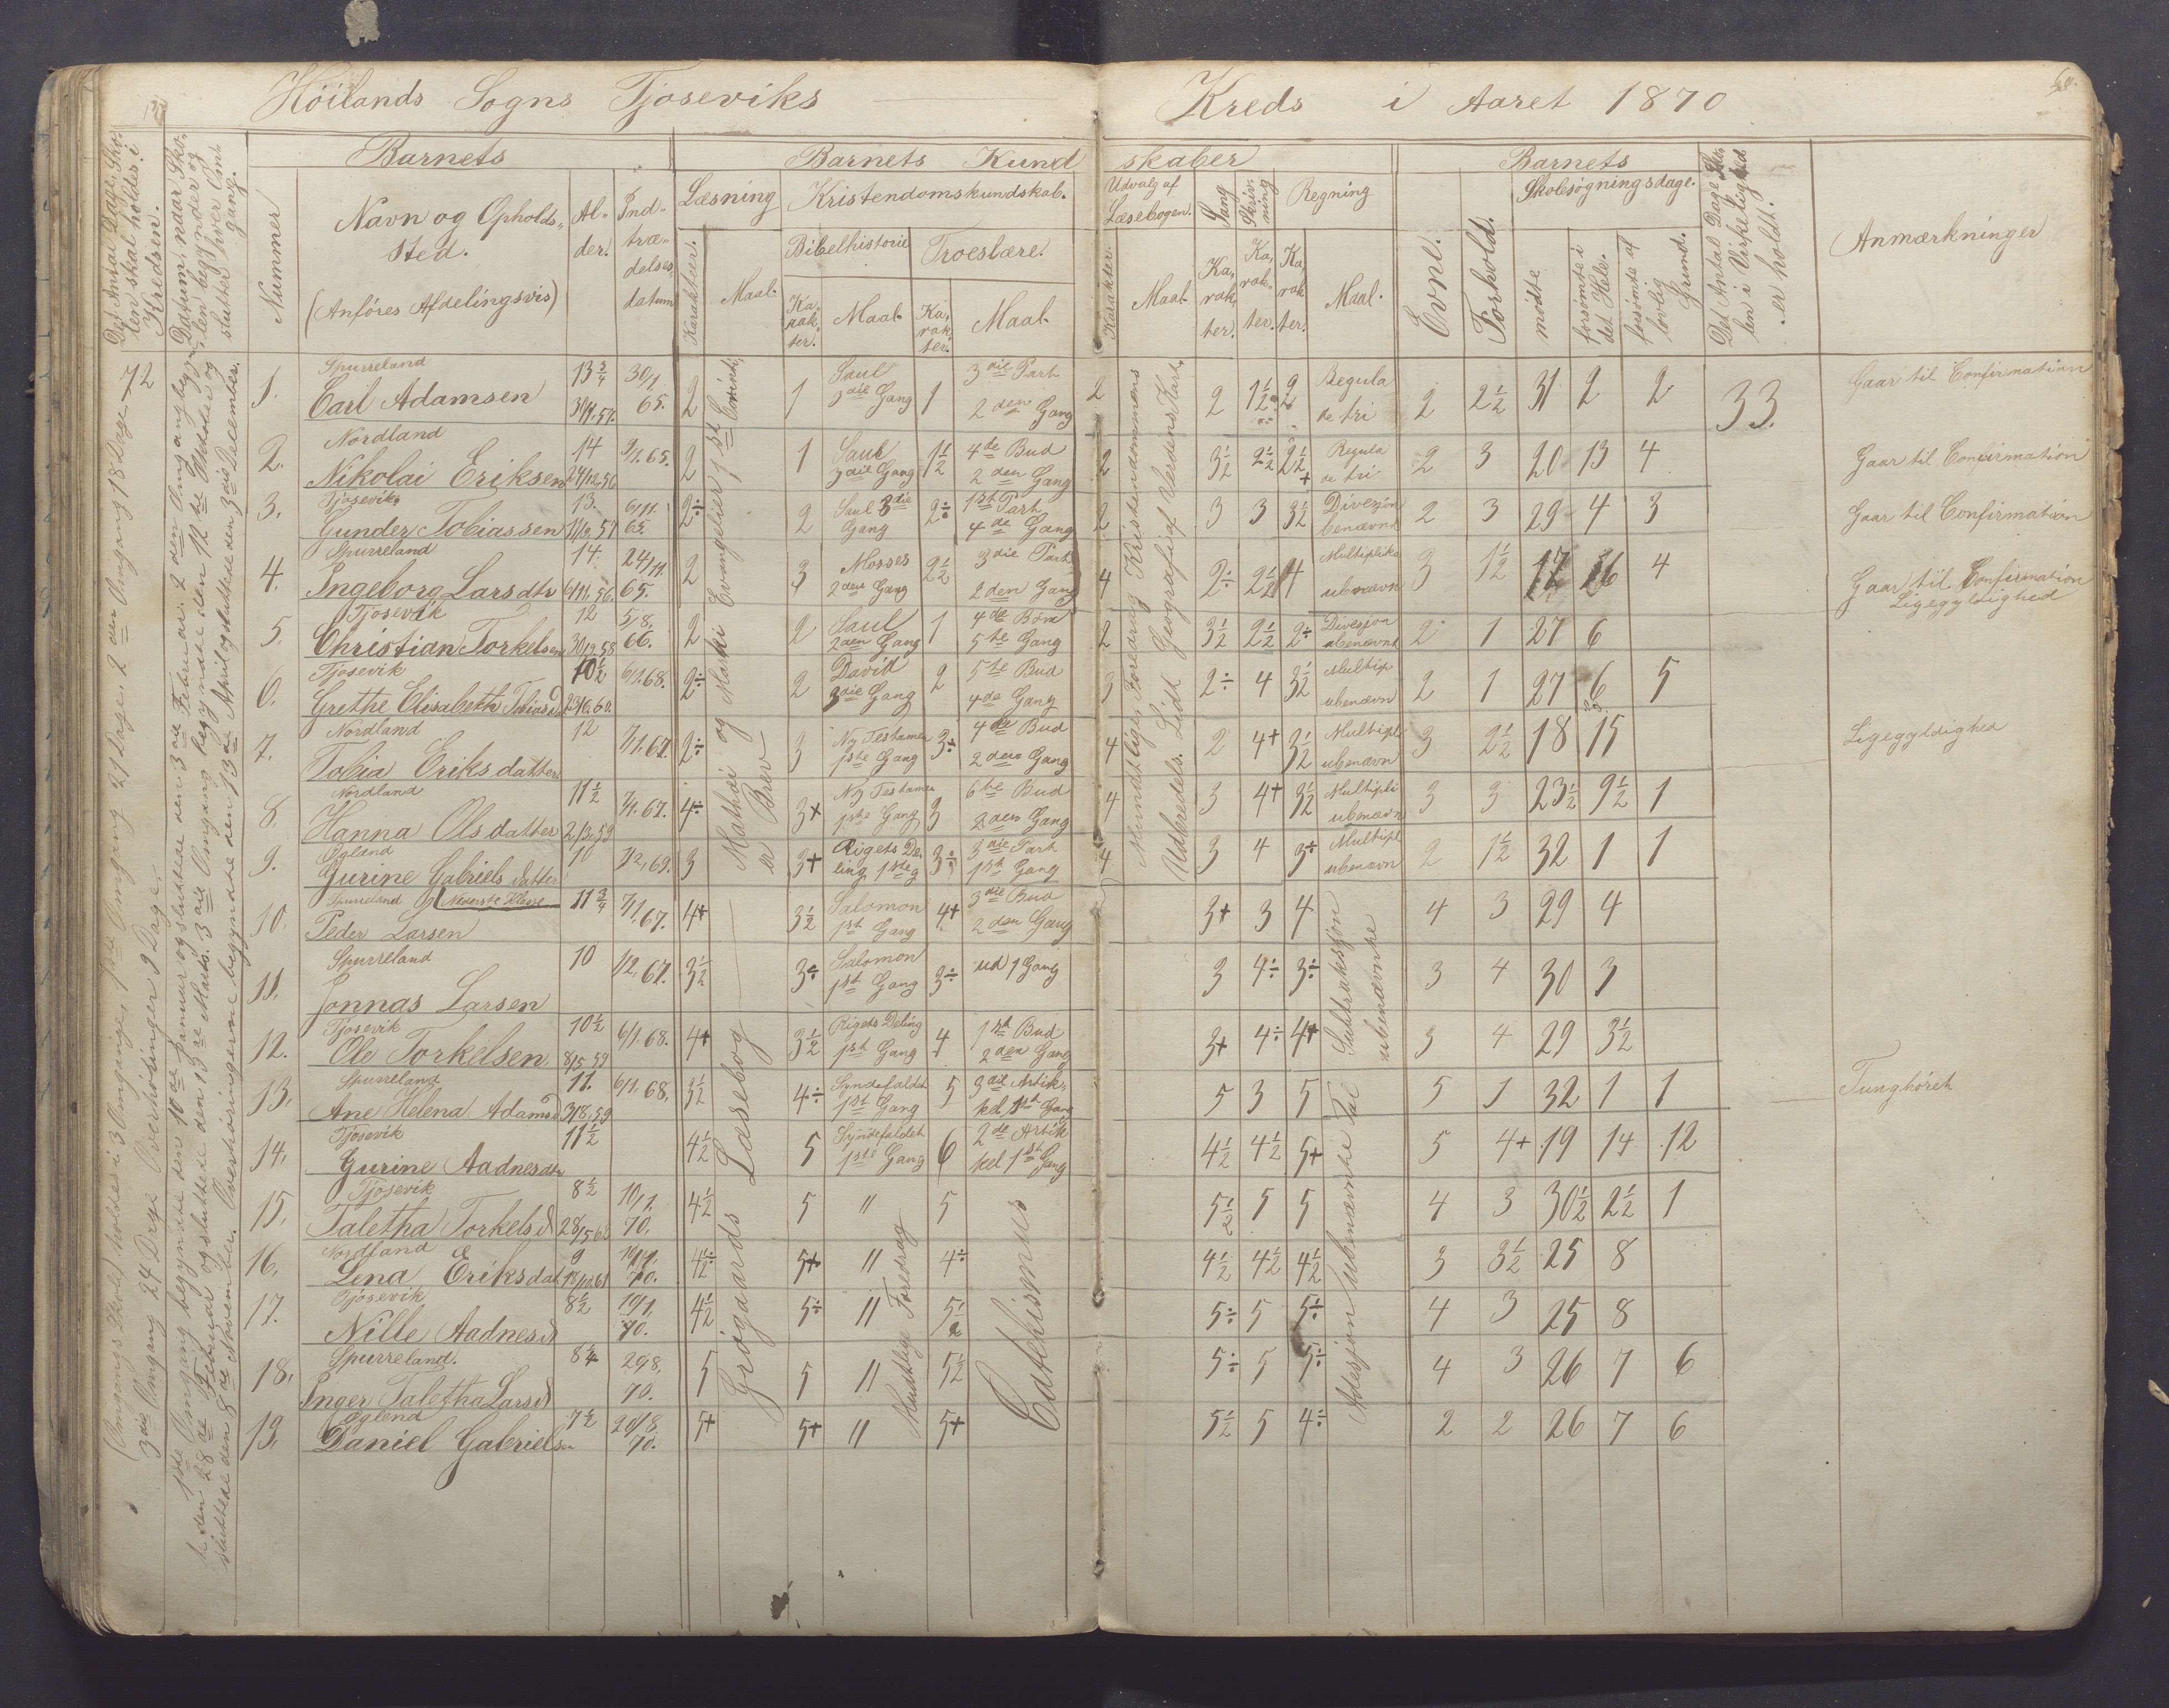 Höilands Sogns Tjoseviks Kreds i Aaret 1870
Det Antal Dage, Sko-
len skal holdes i
Kredsen.
Datum, naar Sko-
len begynder og
slutter hver Om-
gang.
Nummer
Barnets
Navn og Opholds-
sted.
(Anføres Afdelingsvis)
Al-
der.
Ind-
træ-
delses
datum
Barnets Kundskaber
Læsning
Karakter.
Maal.
Kristendomskundskab.
Bibelhistorie
Ka-
rak-
ter.
Maal.
Troeslære.
Ka-
rak-
ter.
Maal.
Udvalg af
Læsebogen.
Karakter.
Maal
Sang
Ka-
rak-
ter.
Skriv-
ning
Ka-
rak-
ter.
Regning
Ka-
rak-
ter.
Maal.
Barnets
Evne.
Forhold.
Skolesøgningsdage.
mødte
forsömte i
det Hele.
forsömte af
lovlig
Grund.
Det Antal Dage Sko-
len i Virkelighed
er holdt.
Anmærkninger
72
(Omgangs Skole) holdes i 3 Omganger, 1ste Omgang 18 Dage, 2den Omgang 21 Dage,
3die Omgang 24 Dage Overhöringer 9 Dage.
1ste Omgang begyndte den 10de Januar og sluttede den 3die Februar. 2den Omgang begyn-
te den 28de Februar og sluttede den 19de Marts. 3die Omgang begyndte den 12te Oktober og
sluttede den 8de November. Overhöringerne begyndte den 13de April og sluttede den 3die December.
1. Spurreland 13 3/4 30/1 2 1 Saul 1 3die Part 2 2 1 1/2 2 Regula 2 2 1/2 31 2 2 33. Gaar til Confirmation
Carl Adamsen 65. 3die Gang 2den Gang de tri
2. Nordland 14 3/1.65. 2 1 Saul 1 1/2 4de Bud 2 3 1/2 2 1/2 2 1/2 + Regula 2 3 20 13 4 Gaar til Confirmation
Nikolai Eriksen 24/12.56 3die Gang 2den Gang de tri
3. Tjosevik 13. 6/11. 2÷ 2 Saul 3die 2÷ 1st Part 2 3 3 3 1/2 Divesjon 2 3 29 4 3 Gaar til Confirmation
Gunder Tobiassen 65. Gang 4de Gang benævnt
4. Spurreland 14. 24/11 2 3 Mosses 2 1/2 3die Part 4 2÷ 2 1/2 4 Multiplika 3 1 1/2 17 16 4 Gaar til Confirmation
Ingeborg Larsdtr 6/11.56. 65. 2den Gang 2den Gang ubenævn Ligegyldighed
5. Tjosevik 12 5/8, 2 2 Saul 1 4de Bøn 2 3 1/2 2 1/2 2÷ Divesjon 2 1 27 6
Christian Torkelsen 66. 2den Gang 5te Gang ubenævnt
6. Tjosevik 10 1/2 6/1.68. 2÷ 2 David 2 5te Bud 3 2÷ 4 3 1/2 Multip 2 1 27 6 5
Grethe Elisabeth Tobiasd 3die Gang 4de Gang ubenævn
7. Nordland 12 7/1.67. 2÷ 3 Ny Testamen 3÷ 4de Bud 4 2 4+ 3 1/2 Multipli 3 2 1/2 18 15 Ligegyldighed
Tobia Eriksdatter 1ste Gang 2den Gang ubenævn
8. Nordland 11 1/2 7/1.67. 4÷ 3+ Ny Testamen 3 6te Bud 4 3 4+ 3 1/2 Multipli 3 3 23 1/2 9 1/2 1
Hanna Olsdatter 2/3.59 1ste Gang 2den Gang ubenævn
9. Øgland 10 7/2,69. 3 3+ Rigets De- 3÷ 3die Part 4 3 4 3+ Multipl 2 1 1/2 32 1 1
Gurine Gabriels datter ling 1ste g 1st Gang ubenævn
10. Spurreland Nederste Klasse 11 3/4 7/1,67. 4+ 3 1/2 Salomon 4+ 3die Bud 3+ 3 4 4 3 29 4
Peder Larsen 1st Gang 2den Gang
11. Spurreland 10 1/2,67. 3 1/2 3÷ Salomon 3÷ ud 1 Gang 3 4÷ 3÷ 3 4 30 3
Jonnas Larsen 1st Gang
12. Tjosevik 10 1/2 6/1.68. 4+ 3 1/2 Rigets Deling 4 1st Bud 3+ 4÷ 4+ 3 4 29 3 1/2
Ole Torkelsen 8/5 59 1st Gang 2den Gang
13. Spurreland 11. 6/1.68, 3 1/2 4÷ Syndefaldet 5 3die Artik- 5 3 5 5 1 32 1 1 Tunghöret
Ane Helena Adamsd 1st Gang kel, 1st Gang
14. Tjosevik 11 1/2 4 1/2 5 Syndefaldet 6 2de Artik 4 1/2 4 1/2 5+ 5 4+ 19 14 12
Gurine Aadnesdtr 1ste Gang kel 1st Gang
15. Tjosevik 8 1/2 10/1. 4 1/2 5 " 5 5 1/2 5 5 4 3 30 1/2 2 1/2 1
Taletha Torkelsd 28/5 62 70.
16. Nordland 9 10/1. 4 1/2÷ 5+ " 4÷ 4 1/2 4 1/2 4 1/2 3 3 1/2 25 8
Lena Eriksdat 70.
17. Tjosevik 8 1/2 10/1. 4 1/2 5÷ " 5 1/2 5÷ 5 5÷ 4 3 25 8
Nille Aadnesd 70.
18. Spurreland. 8 1/4 29/8, 5 5 " 5 1/2 5÷ 5 5÷ 4 3 26 7 6
Inger Taletha Larsd 70.
19. Øglend 7 1/2 29/8. 5+ 5+ " 5+ 5 1/2 5 4÷ 2 2 26 7 6
Daniel Gabrielsen 70.
Mathæi og Marki Evangelier, 1st Corinti,
er Brev
Grögaards Læsebog
Mundtlige Foredrag
Catekismus
Mundtlige Foredrag Kristendommens
Udbredels. Lidt Geografi af Verdens Kart.
Subtraksjon
ubenævnte
Adesjon ubenævnte Tal